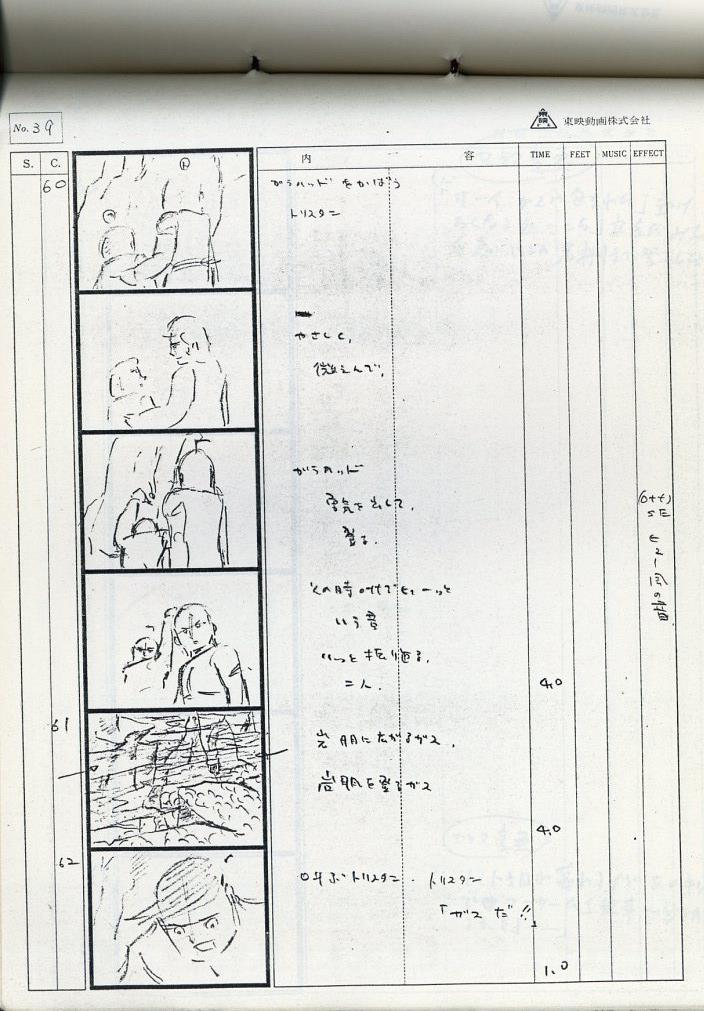 No.39
東映
東映動画株式会社
S. C. 内 容 TIME FEET MUSIC EFFECT
60
ガラハッドをかばう
トリスタン
ト
ガ
やさしく、
微笑んで、
ガラハッド
勇気を出して、
登る。
(オフ)
SE
ヒューㅡ風の音
その時 オフでヒューッと
いう音
ハッと振り返る、
二人。
4.0
61
岩肌に広がるガス、
岩肌を登るガス
4.0
62
叫ぶトリスタン.
トリスタン
「ガスだ!!」
1.0